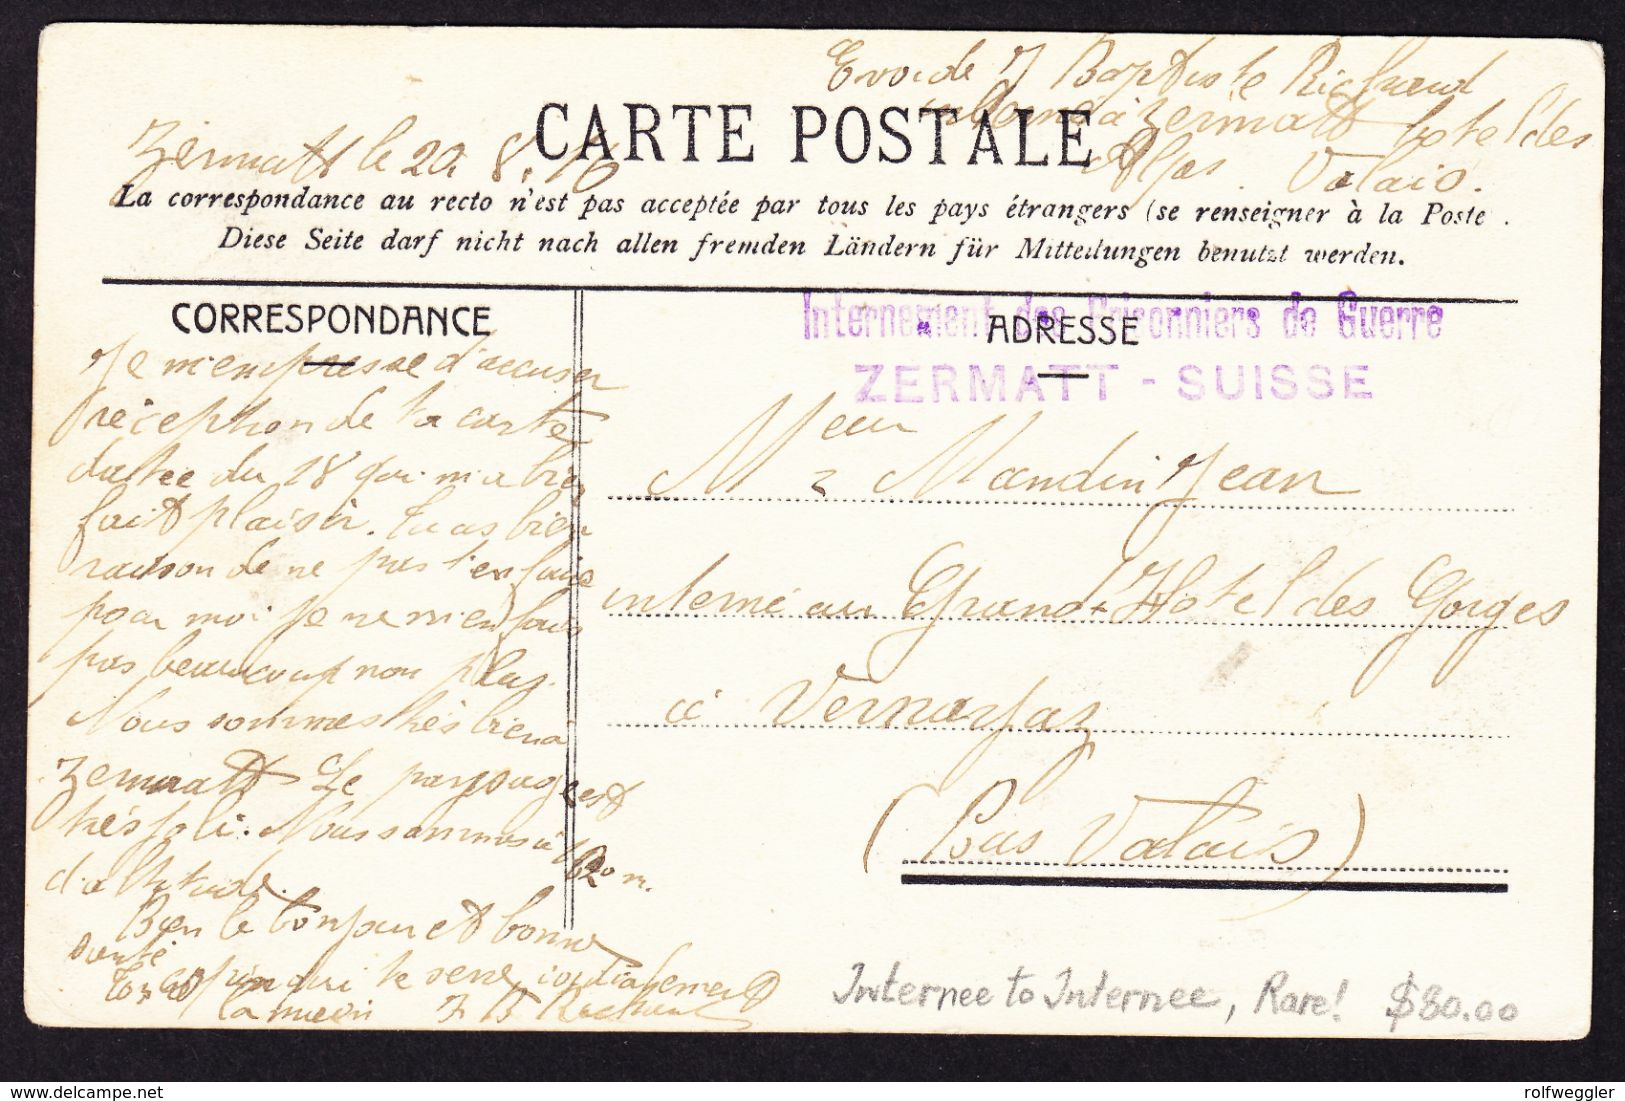 Envoi de J Baptiste Richaud
interné à Zermatt hotel des
Alpes. Valais.
Zermatt le 20. 8. 16
CARTE POSTALE
La correspondance au recto n'est pas acceptée par tous les pays étrangers (se renseigner à la Poste.
Diese Seite darf nicht nach allen fremden Ländern für Mitteilungen benutzt werden.
CORRESPONDANCE
Je m'empresse d'accuser
réception de ta carte
dattée du 18 qui m'a bien
fait plaisir. Tu as bien
raison de ne pas t'en fair
pour moi je ne m'en fais
pas beaucoup non plus.
Nous sommes très bien à
Zermatt. Le paysage est
très joli. Nous sommes à 1620 m.
d'altitude.
Bien le bonjour et bonne
santé
Ton copin qui te serre cordialement
la main J B Richaud
Internement des Prisonniers de Guerre
ADRESSE
ZERMATT - SUISSE
Mandin Jean
interné au Grand-Hotel des Gorges
à Vernayaz
(Bas Valais)
Internee to Internee, Rare! $80.00
delcampe.net
rolfweggler